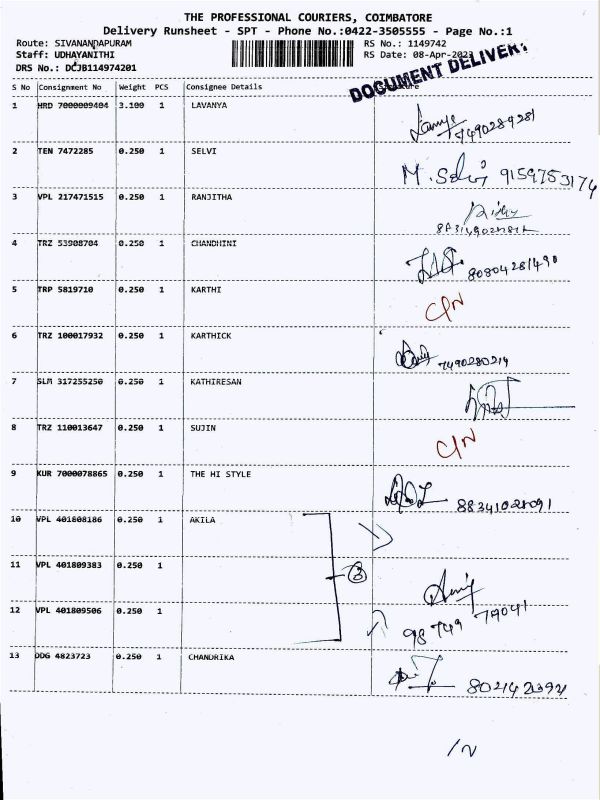 THE PROFESSIONAL COURIERS, COIMBATORE
Delivery Runsheet - SPT - Phone No.:0422-3505555 - Page No.:1
Route: SIVANANDAPURAM RS No.: 1149742
Staff: UDHAYANITHI RS Date: 08-Apr-2023
DRS No.: DCJB114974201
DOCUMENT DELIVERY
S No Consignment No Weight PCS Consignee Details
1 HRD 7000009404 3.100 1 LAVANYA
7490289281
2 TEN 7472285 0.250 1 SELVI
M. Selvi 9159753174
3 VPL 217471515 0.250 1 RANJITHA
4 TRZ 53908704 0.250 1 CHANDHINI
80804281490
5 TRP 5819710 0.250 1 KARTHI
C/N
6 TRZ 100017932 0.250 1 KARTHICK
7490280219
7 SLM 317255250 0.250 1 KATHIRESAN
8 TRZ 110013647 0.250 1 SUJIN
C/N
9 KUR 7000078865 0.250 1 THE HI STYLE
88341028091
10 VPL 401808186 0.250 1 AKILA
11 VPL 401809383 0.250 1
3
12 VPL 401809506 0.250 1
98749 7A041
13 DDG 4823723 0.250 1 CHANDRIKA
8021422392